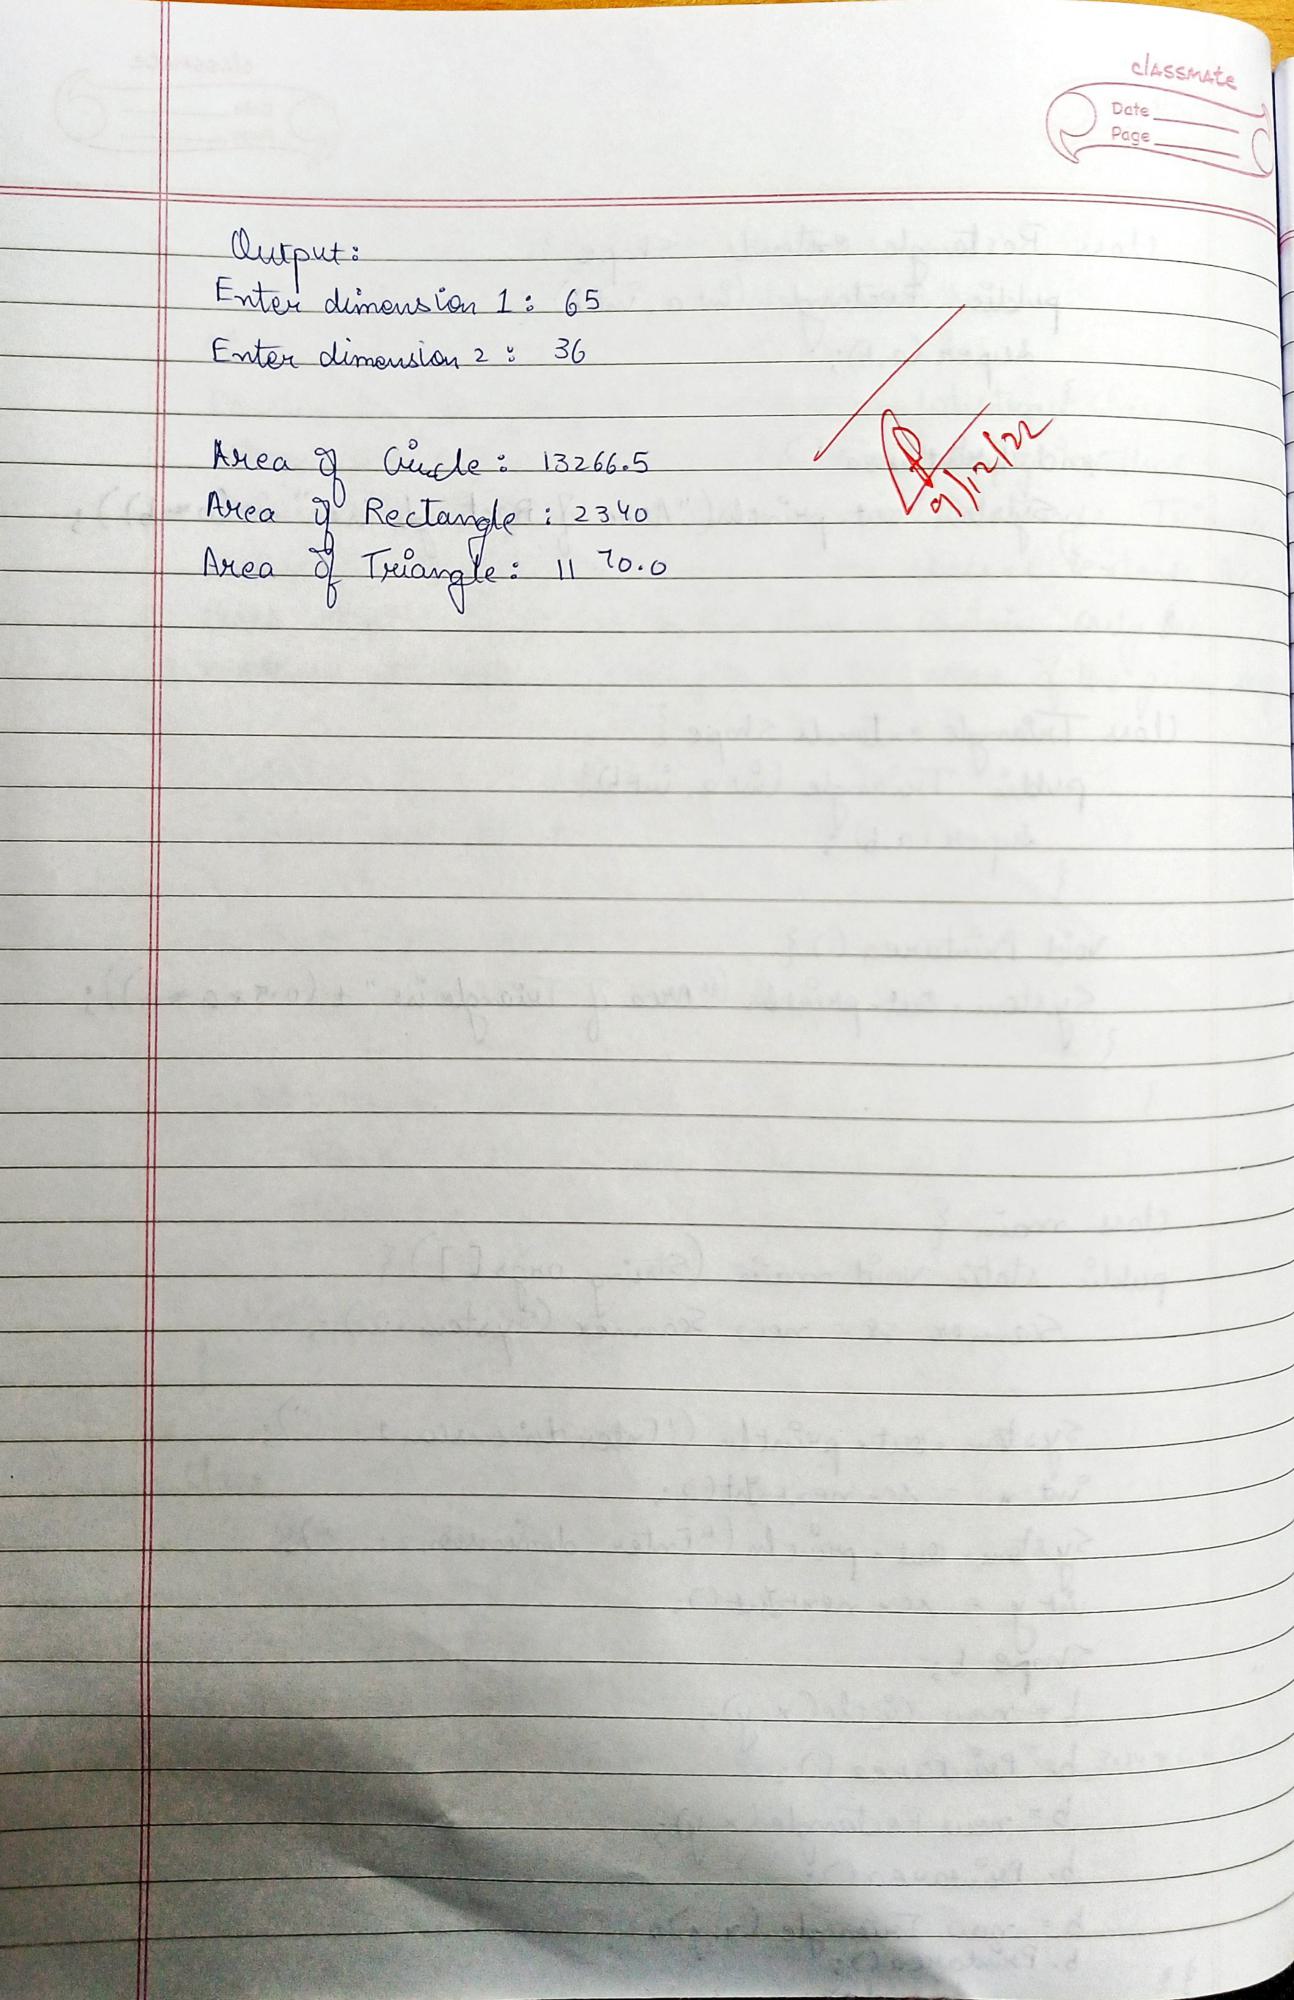 classmate
Date
Page
Output:
Enter dimension 1: 65
Enter dimension 2: 36
Area of Circle: 13266.5
Area of Rectangle: 2340
Area of Triangle: 1170.0
9/12/22